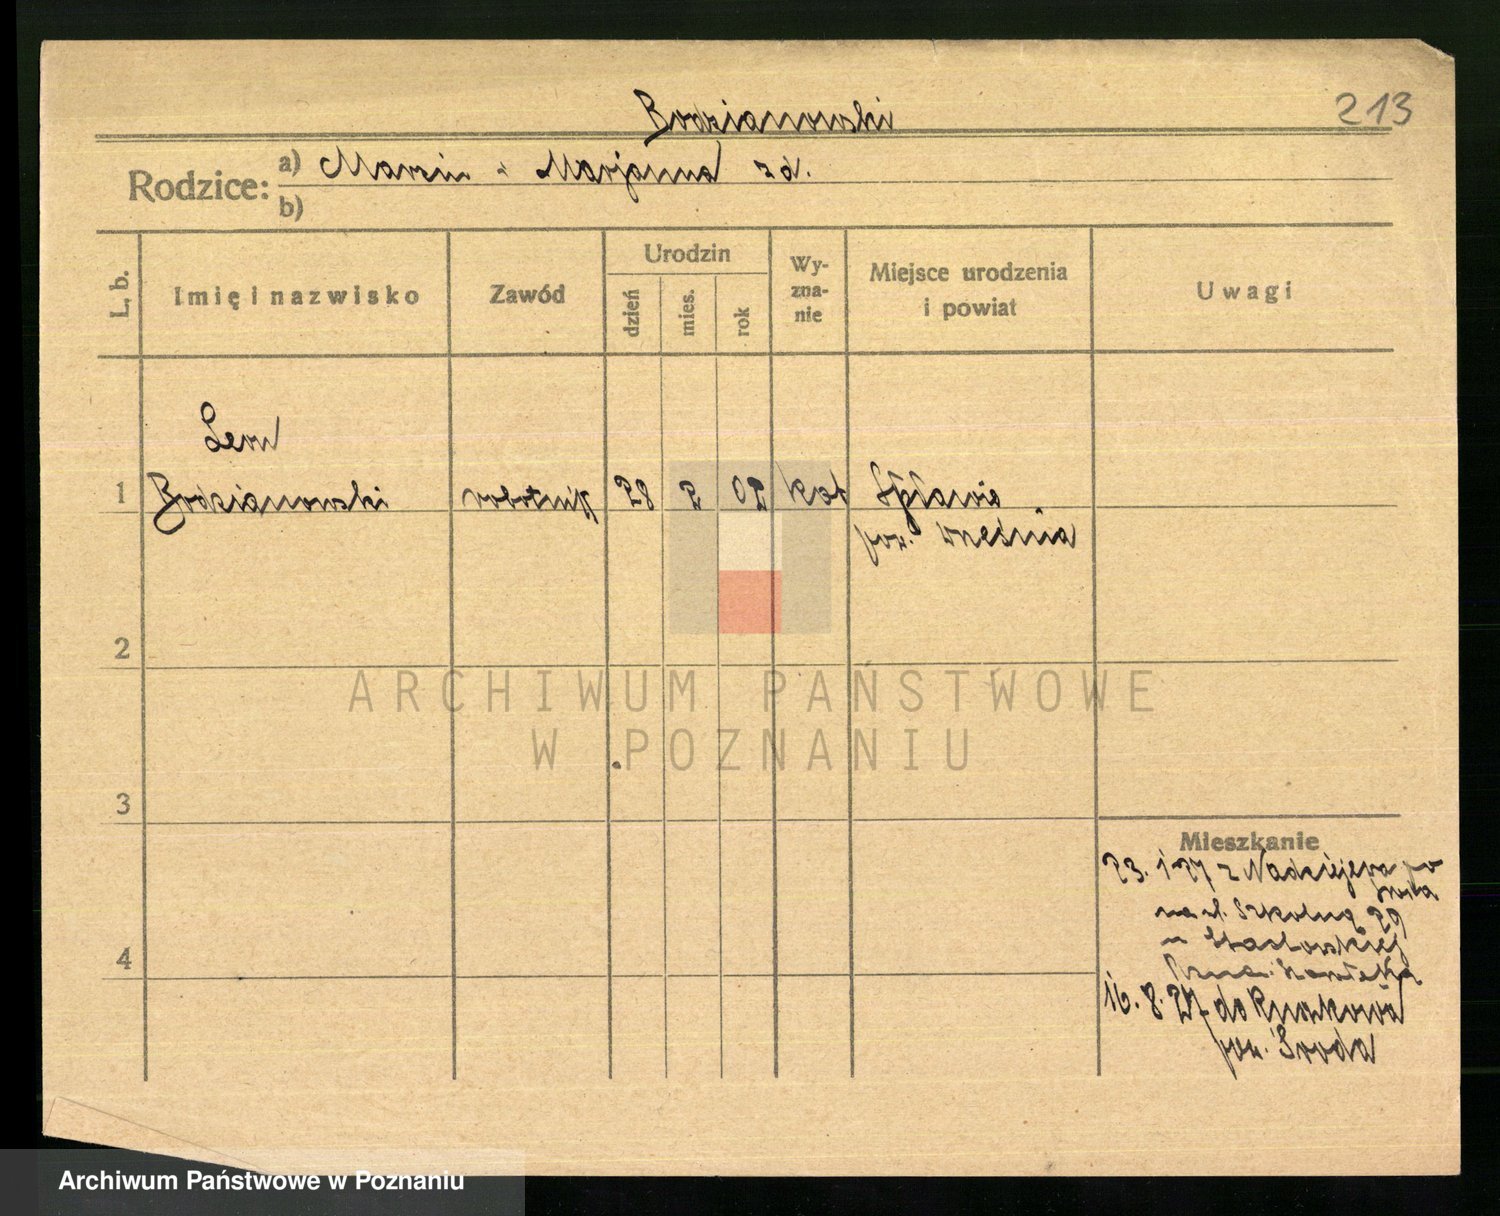 Bodzianowski
213
Rodzice: a) Marcin i Marjanna zd.
b)
L. b.
Imię i nazwisko
Zawód
Urodzin
dzień
mies.
rok
Wy-
zna-
nie
Miejsce urodzenia
i powiat
Uwagi
Leon
1 Bodzianowski robotnik 28 2 02 kat Spławie
pow. Września
2
ARCHIWUM PAŃSTWOWE
W POZNANIU
3
Mieszkanie
23. 1 27 z Nadziejewa po
Środa
na ul. Szkolną 29
u
4
16. 8. 27 do
pow. Środa
Archiwum Państwowe w Poznaniu